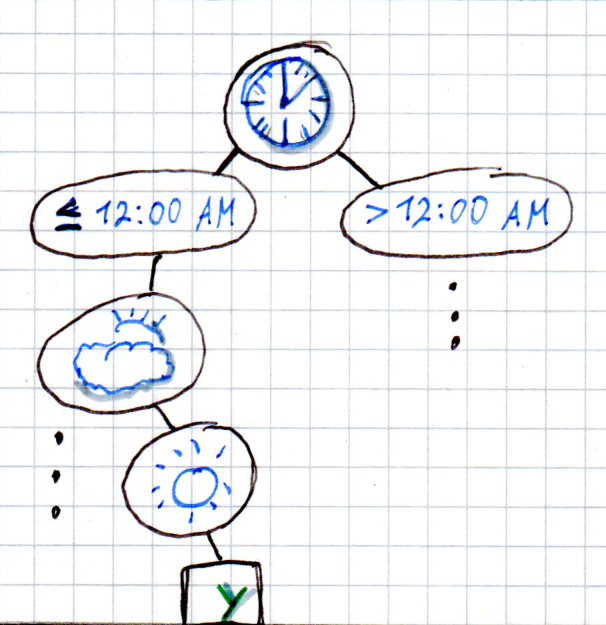 ≤ 12:00 AM
> 12:00 AM
Y